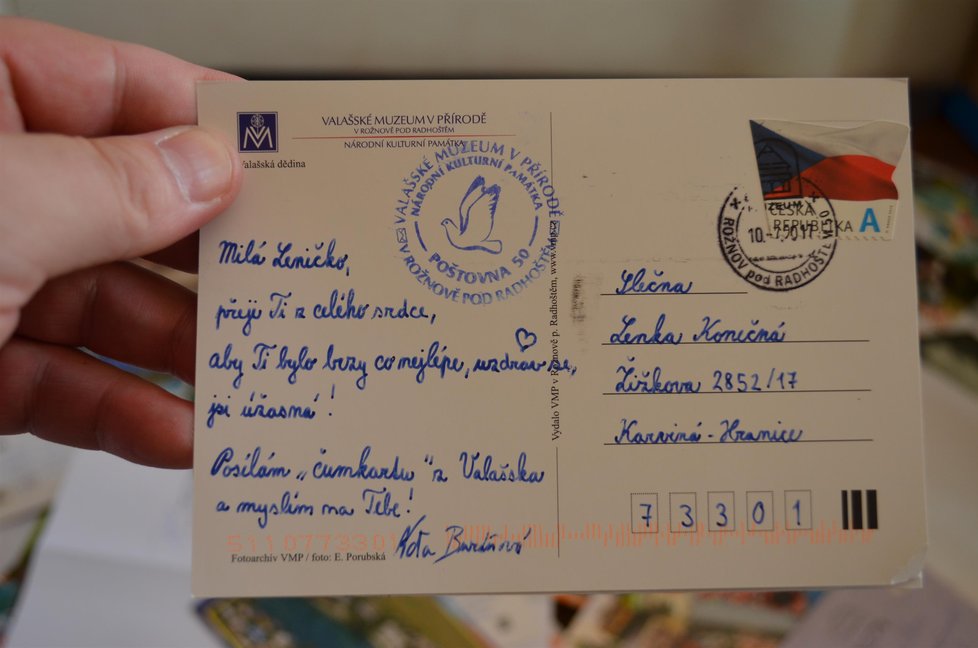 VALAŠSKÉ MUZEUM V PŘÍRODĚ
V ROŽNOVĚ POD RADHOŠTĚM
NÁRODNÍ KULTURNÍ PAMÁTKA
Valašská dědina
VALAŠSKÉ MUZEUM V PŘÍRODĚ
NÁRODNÍ KULTURNÍ PAMÁTKA
POŠTOVNA 50
V ROŽNOVĚ POD RADHOŠTĚM
Milá Leničko,
přeji Ti z celého srdce,
aby Ti bylo brzy co nejlépe, uzdrav se,
jsi úžasná!
Posílám „čumkartu" z Valašska
a myslím na Tebe!
Fotoarchiv VMP / foto: E. Porubská
Vydalo VMP v Rožnově p. Radhoštěm, www.vmp.cz
ČESKÁ
REPUBLIKA A
MUZEUM
ROŽNOV pod RADHOŠTĚM 50
Slečna
Lenka Konečná
Žižkova 2852/17
Karviná - Hranice
73301